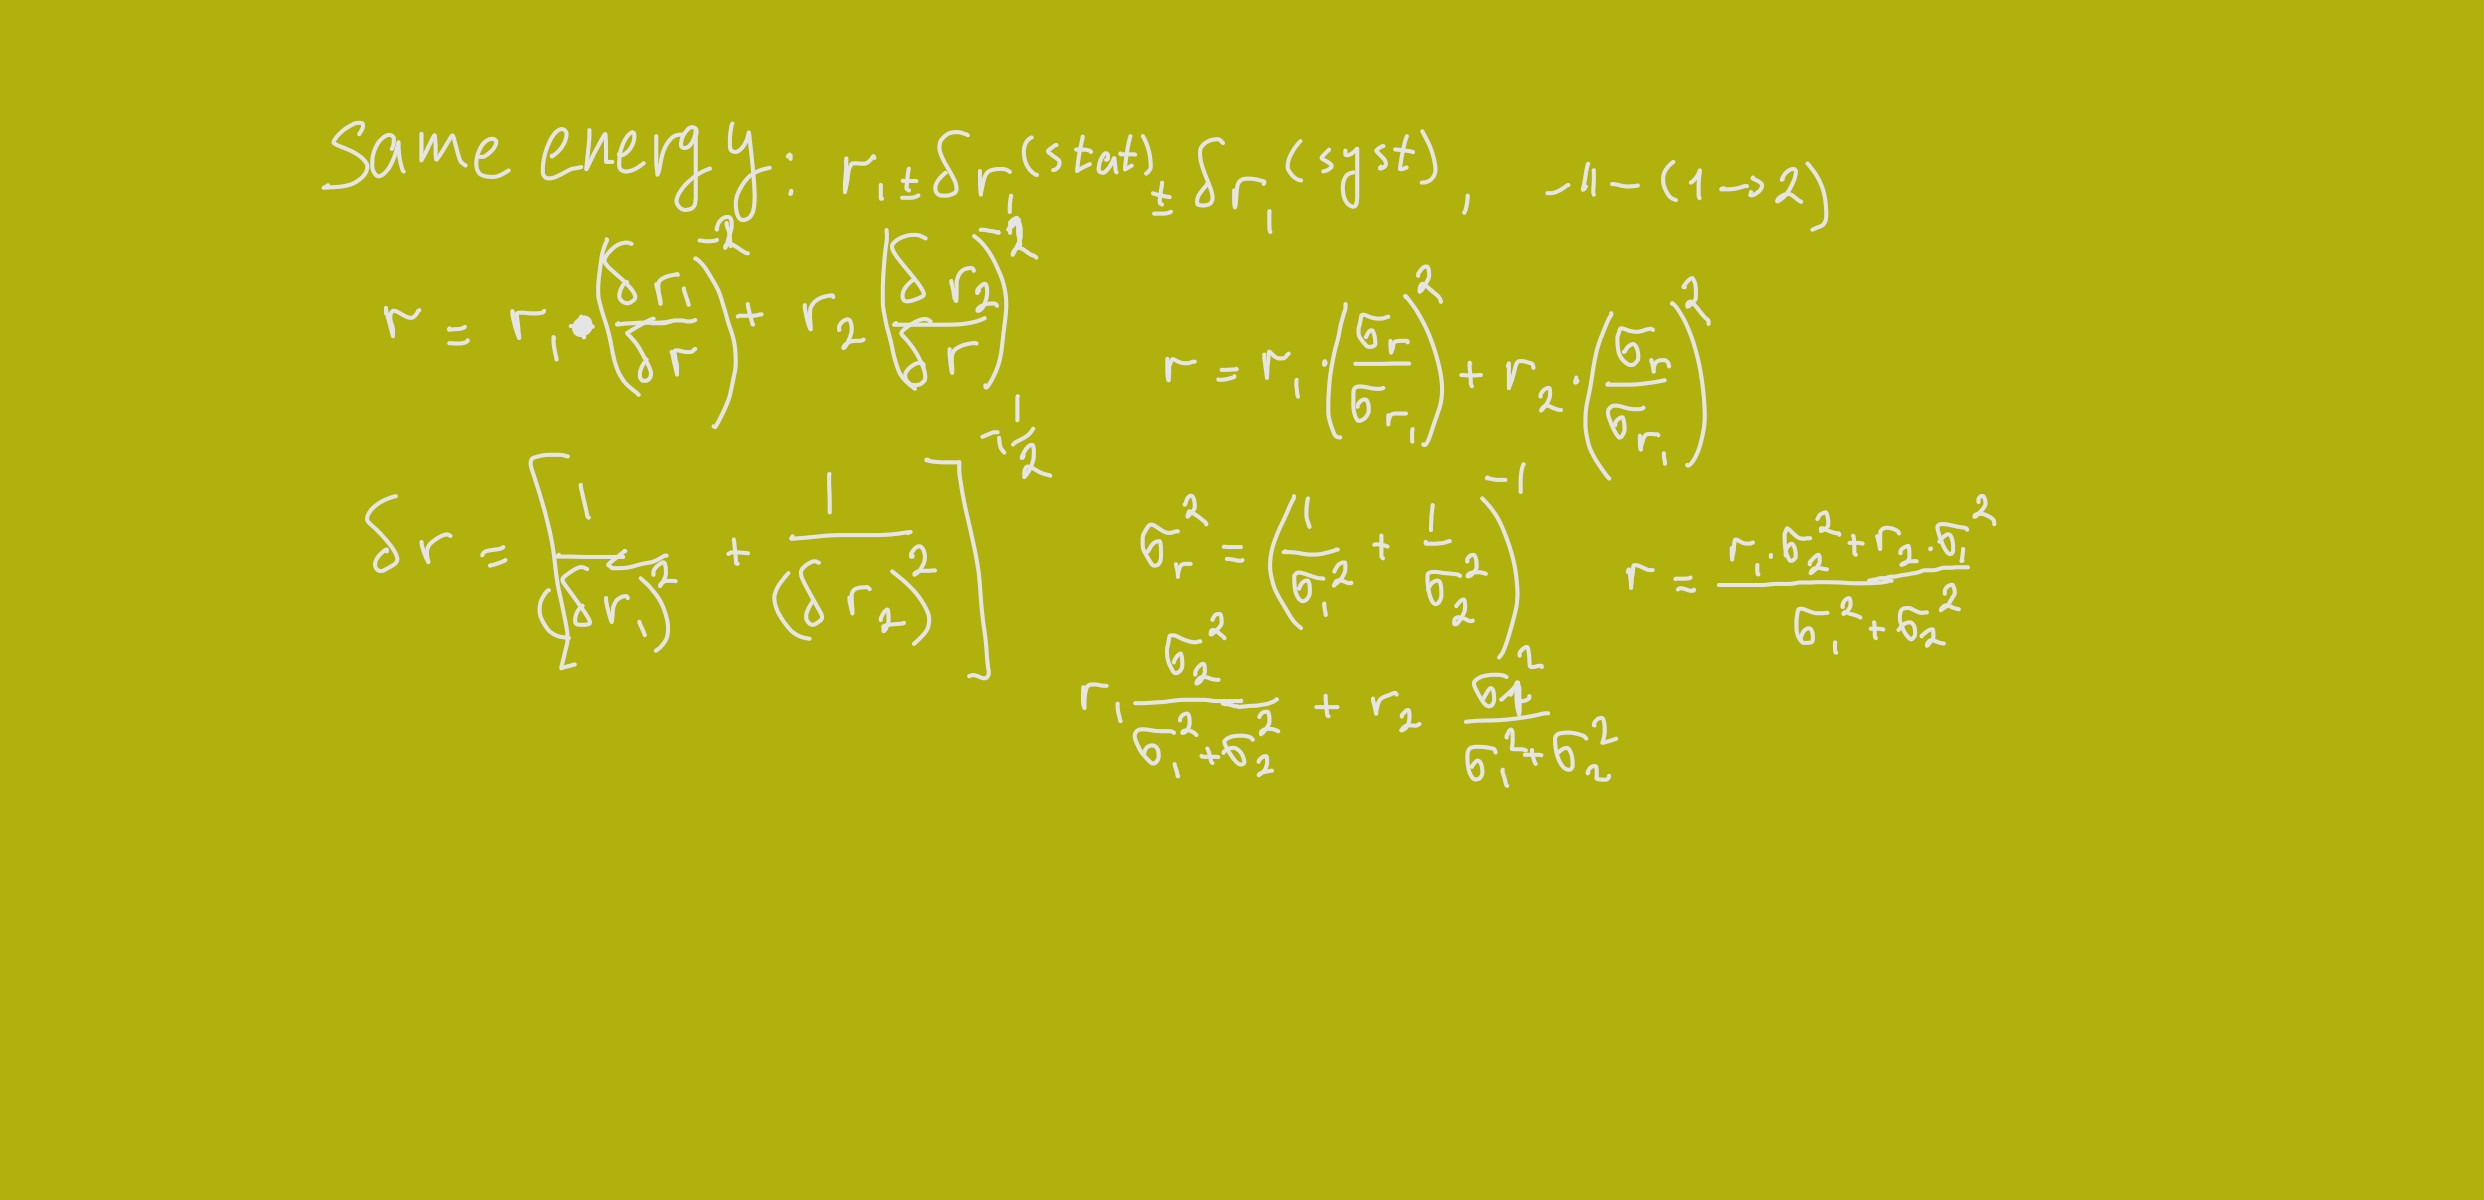 Same energy: r₁ ± δr₁(stat) ± δr₁(syst), -11- (1→2)
r = r₁·(δr₁/δr)⁻² + r₂(δr₂/δr)⁻²
r = r₁·(σ_r/σ_r₁)² + r₂·(σ_r/σ_r₁)²
δr = [1/(δr₁)² + 1/(δr₂)²]^(-1/2)
σ_r² = (1/σ₁² + 1/σ₂²)⁻¹
r = (r₁·σ₂² + r₂·σ₁²)/(σ₁² + σ₂²)
r₁ σ₂²/(σ₁² + σ₂²) + r₂ σ₁²/(σ₁² + σ₂²)